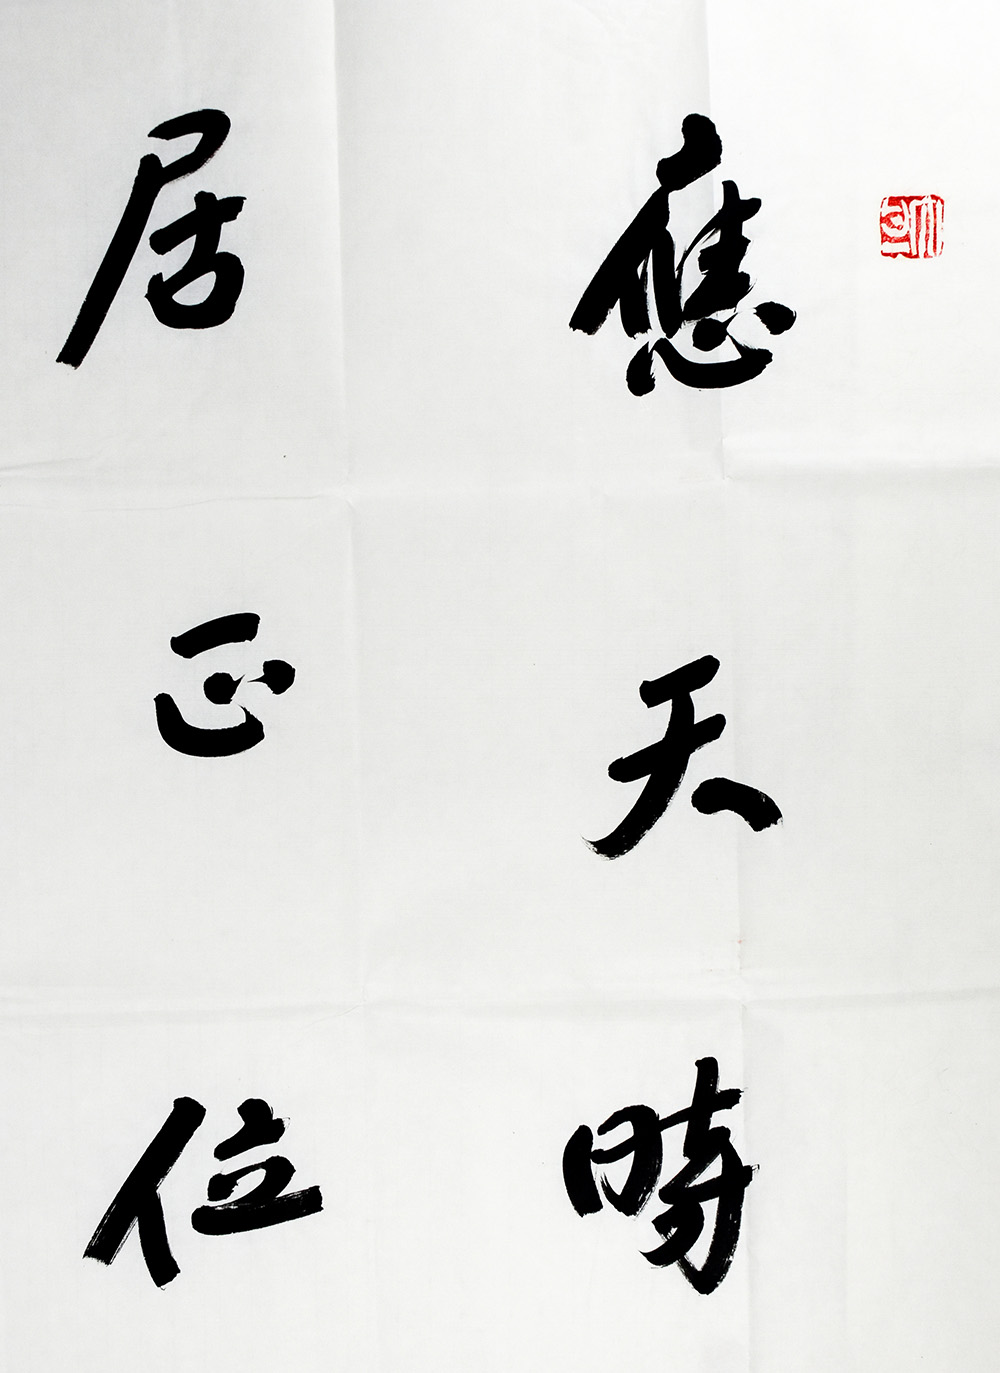 應天時
居正位